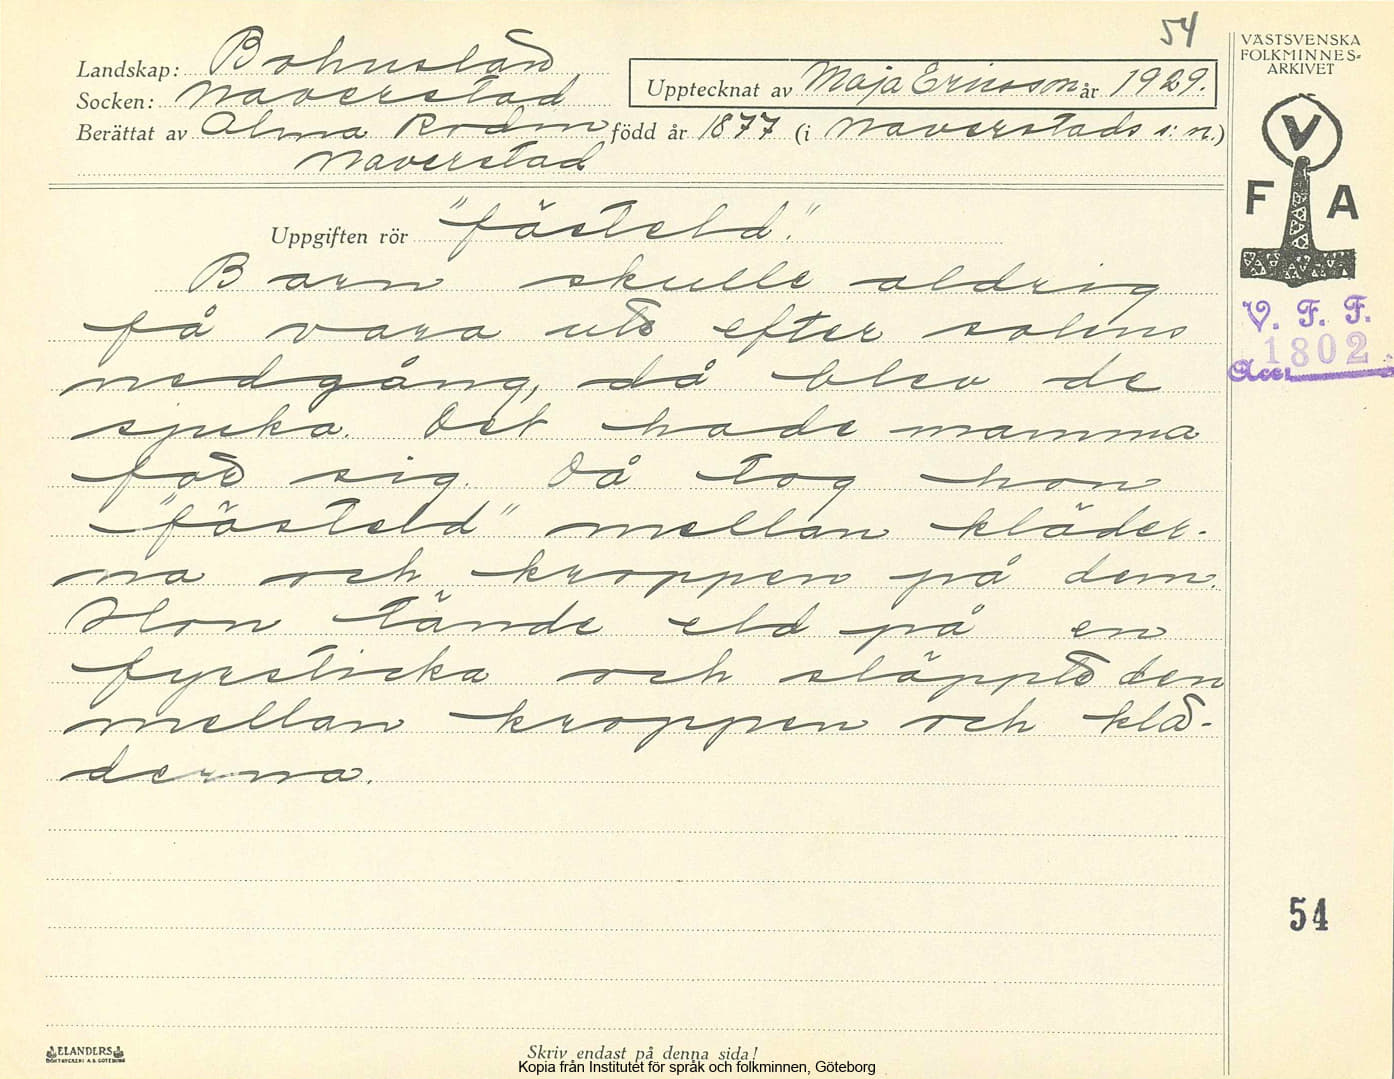 54
Landskap: Bohuslän
Socken: Naverstad
Upptecknat av Maja Ericsson år 1929.
Berättat av Alma Rodin född år 1877 (i Naverstads s:n.)
Naverstad
VÄSTSVENSKA
FOLKMINNES-
ARKIVET
V
F A
V. F. F.
1802
Acc.
Uppgiften rör "fästeld."
Barn skulle aldrig
få vara ute efter solens
nedgång, då blev de
sjuka. Det hade mamma
för sig. Då tog hon
"fästeld" mellan kläder-
na och kroppen på dem.
Hon tände eld på en
fyrsticka och släppte den
mellan kroppen och klä-
derna.
54
ELANDERS
BOKTRYCKERI A.B. GÖTEBORG
Skriv endast på denna sida!
Kopia från Institutet för språk och folkminnen, Göteborg